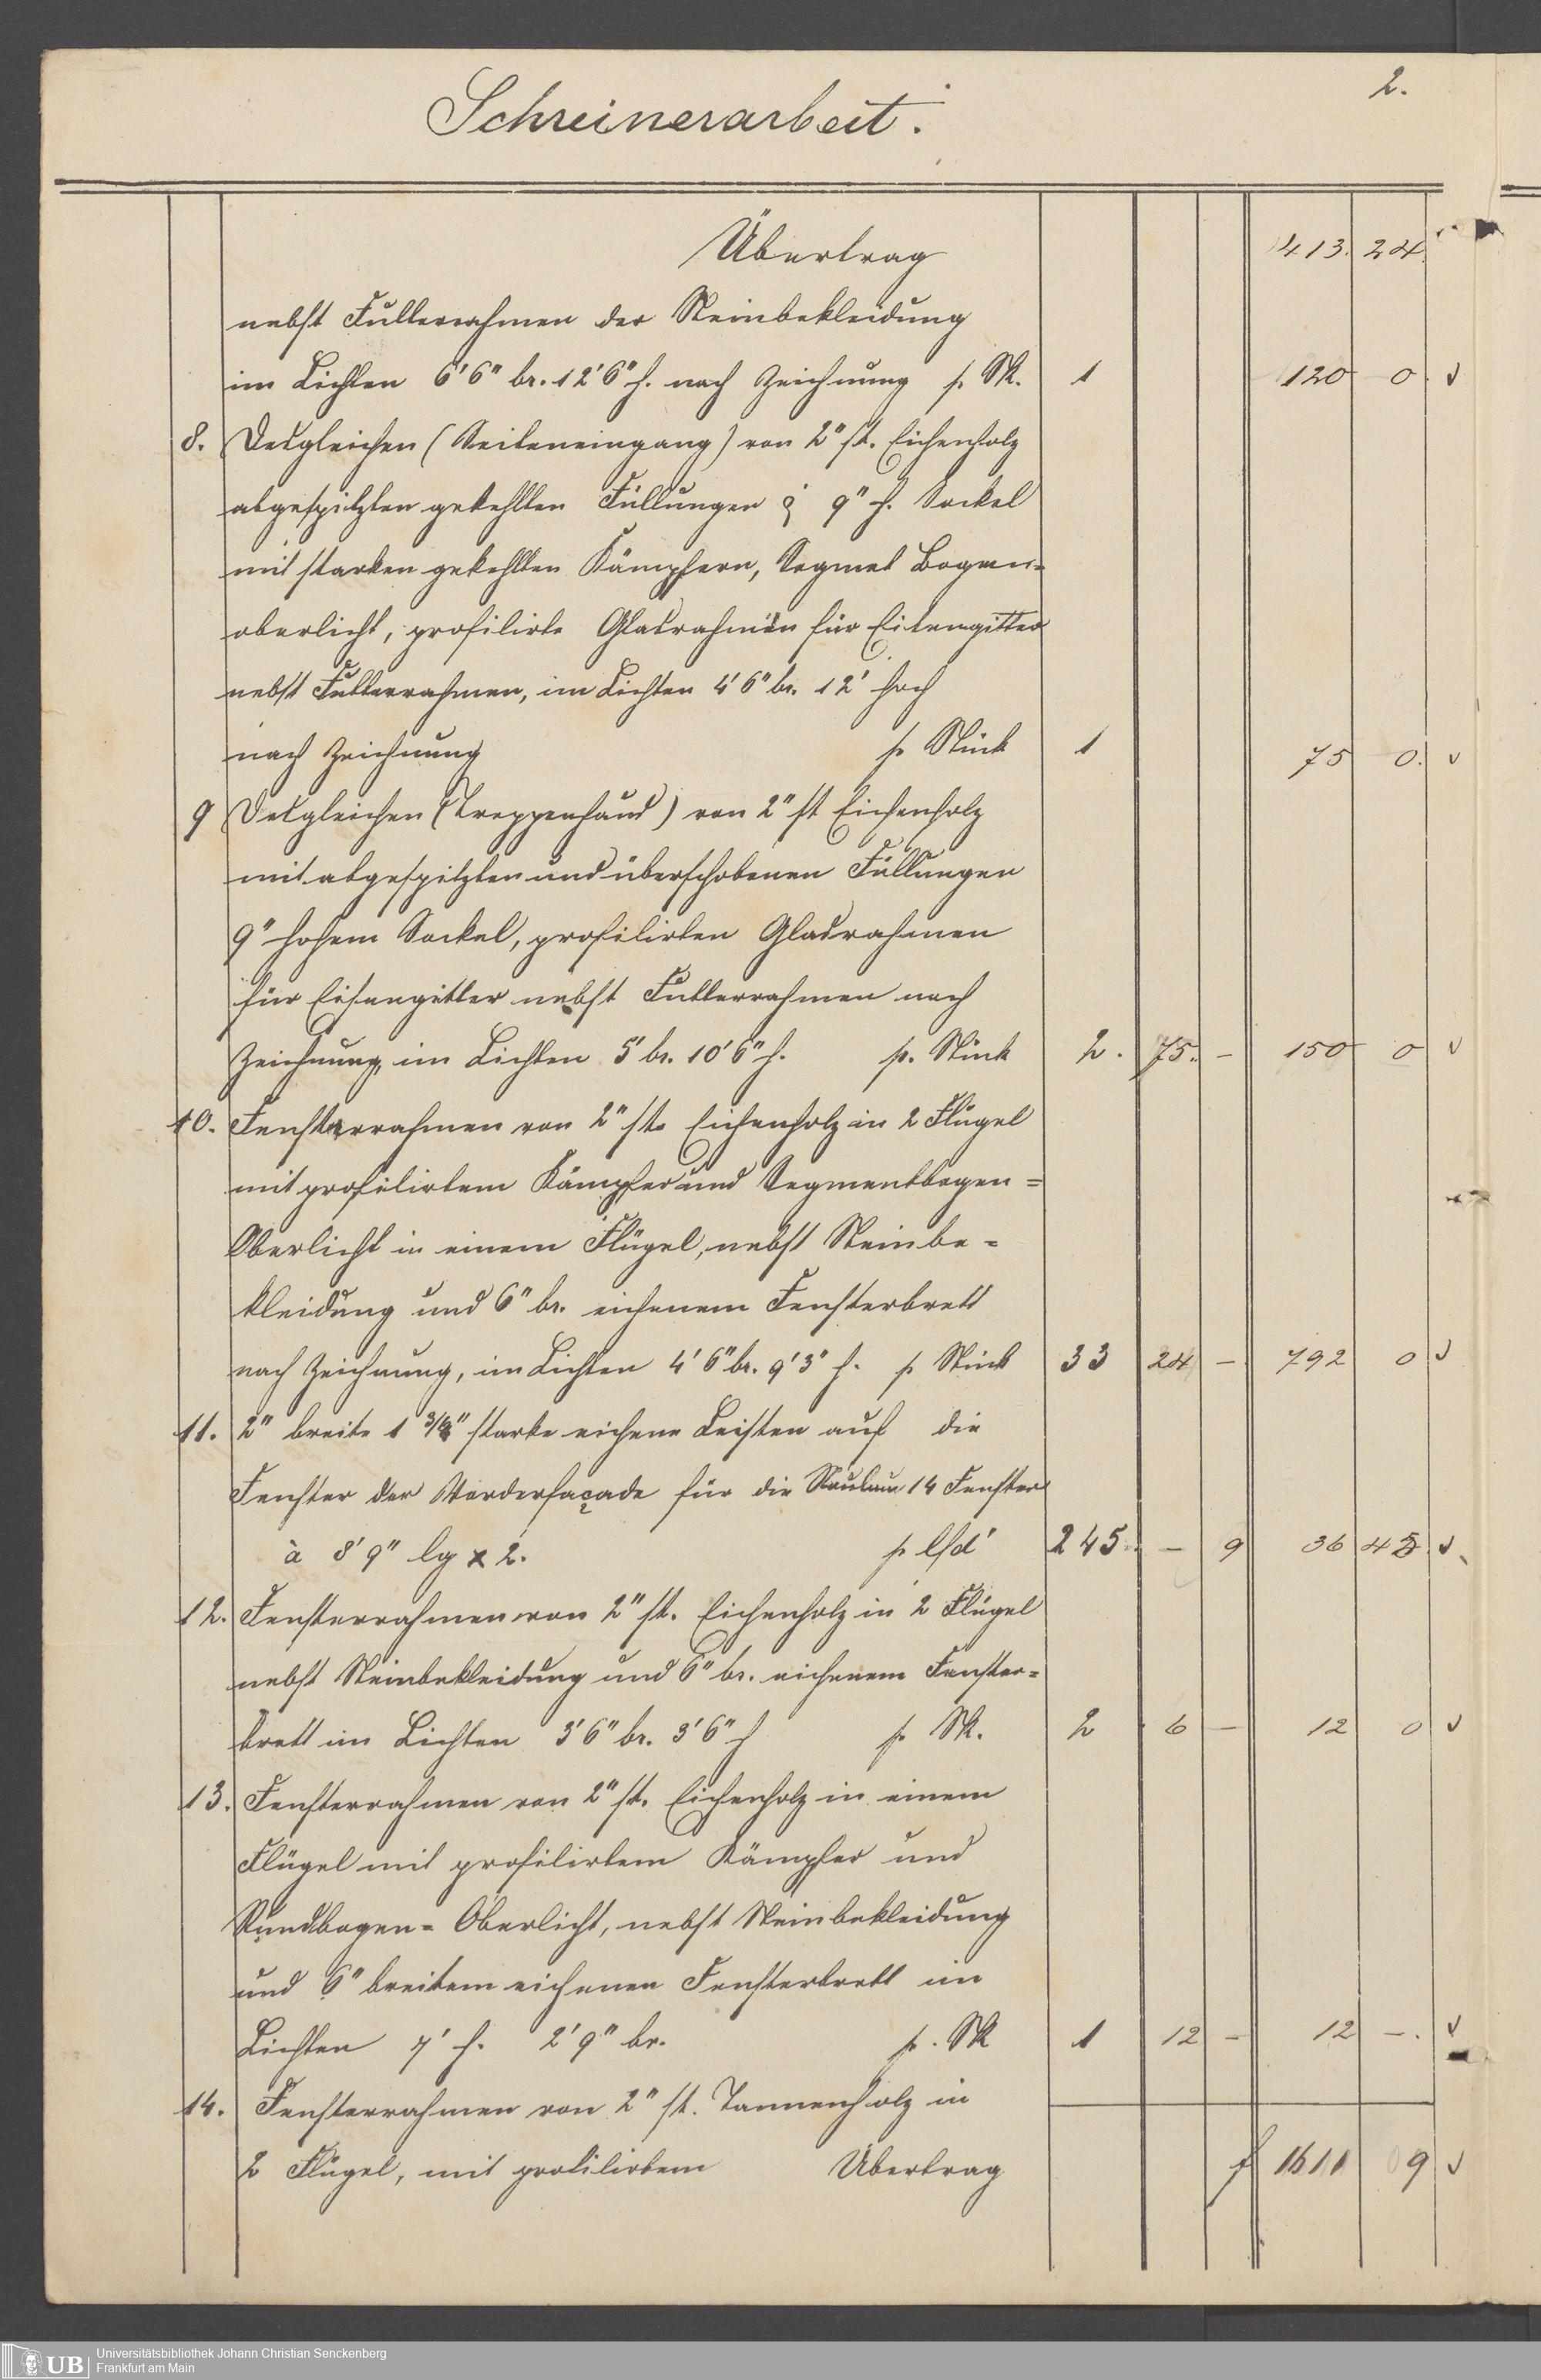 2.
Schreinerarbeit.
Übertrag 413. 24.
nebst Futterrahmen der Steinbekleidung
im Lichten 6'6" br. 12'6" h. nach Zeichnung p. Stk. 1 120 0. v
8. Desgleichen (Seiteneingang) von 2" st. Eichenholz
abgespitzten gekehlten Füllungen & 9" h. Sockel
mit starken gekehlten Kämpfern, Segmet Bogen-
oberlicht, profilirte Glasrahmen für Eisengitter
nebst Futterrahmen, im Lichten 4'6" br. 12' hoch
nach Zeichnung p. Stück 1 75 0. v
9 Desgleichen (Treppenhaus) von 2" st Eichenholz
mit abgespitzten und überschobenen Füllungen
9" hohem Sockel, profilirten Glasrahmen
für Eisengitter nebst Futterrahmen nach
Zeichnung, im Lichten 5' br. 10'6" h. p. Stück 2. 75. – 150 0 v
10. Fensterrahmen von 2" st. Eichenholz in 2 Flügel
mit profilirtem Kämpfer und Segmentbogen=
Oberlicht in einem Flügel, nebst Steinbe-
kleidung und 6" br. eichenem Fensterbrett
nach Zeichnung, im Lichten 4'6" br. 9'3" h. p Stück 33 24 – 792 0 v
11. 2" breite 1 3/4" starke eichene Leisten auf die
Fenster der Vorderfaçade für die 14 Fenster
à 8'9" lg x 2. p lfd' 245. – 9 36 45 v.
12. Fensterrahmen von 2" st. Eichenholz in 2 Flügel
nebst Steinbekleidung und 6" br. eichenem Fenster=
brett im Lichten 3'6" br. 3'6" h p. Stk. 2 6 – 12 0 v
13. Fensterrahmen von 2" st. Eichenholz in einem
Flügel mit profilirtem Kämpfer und
Rundbogen= Oberlicht, nebst Steinbekleidung
und 6" breitem eichenen Fensterbrett im
Lichten 7' h. 2'9" br. p. Stk 1 12 – 12 –. v
14. Fensterrahmen von 2" st. Tannenholz in
2 Flügel, mit profilirtem Übertrag f 1611 09 v
UB Universitätsbibliothek Johann Christian Senckenberg
Frankfurt am Main